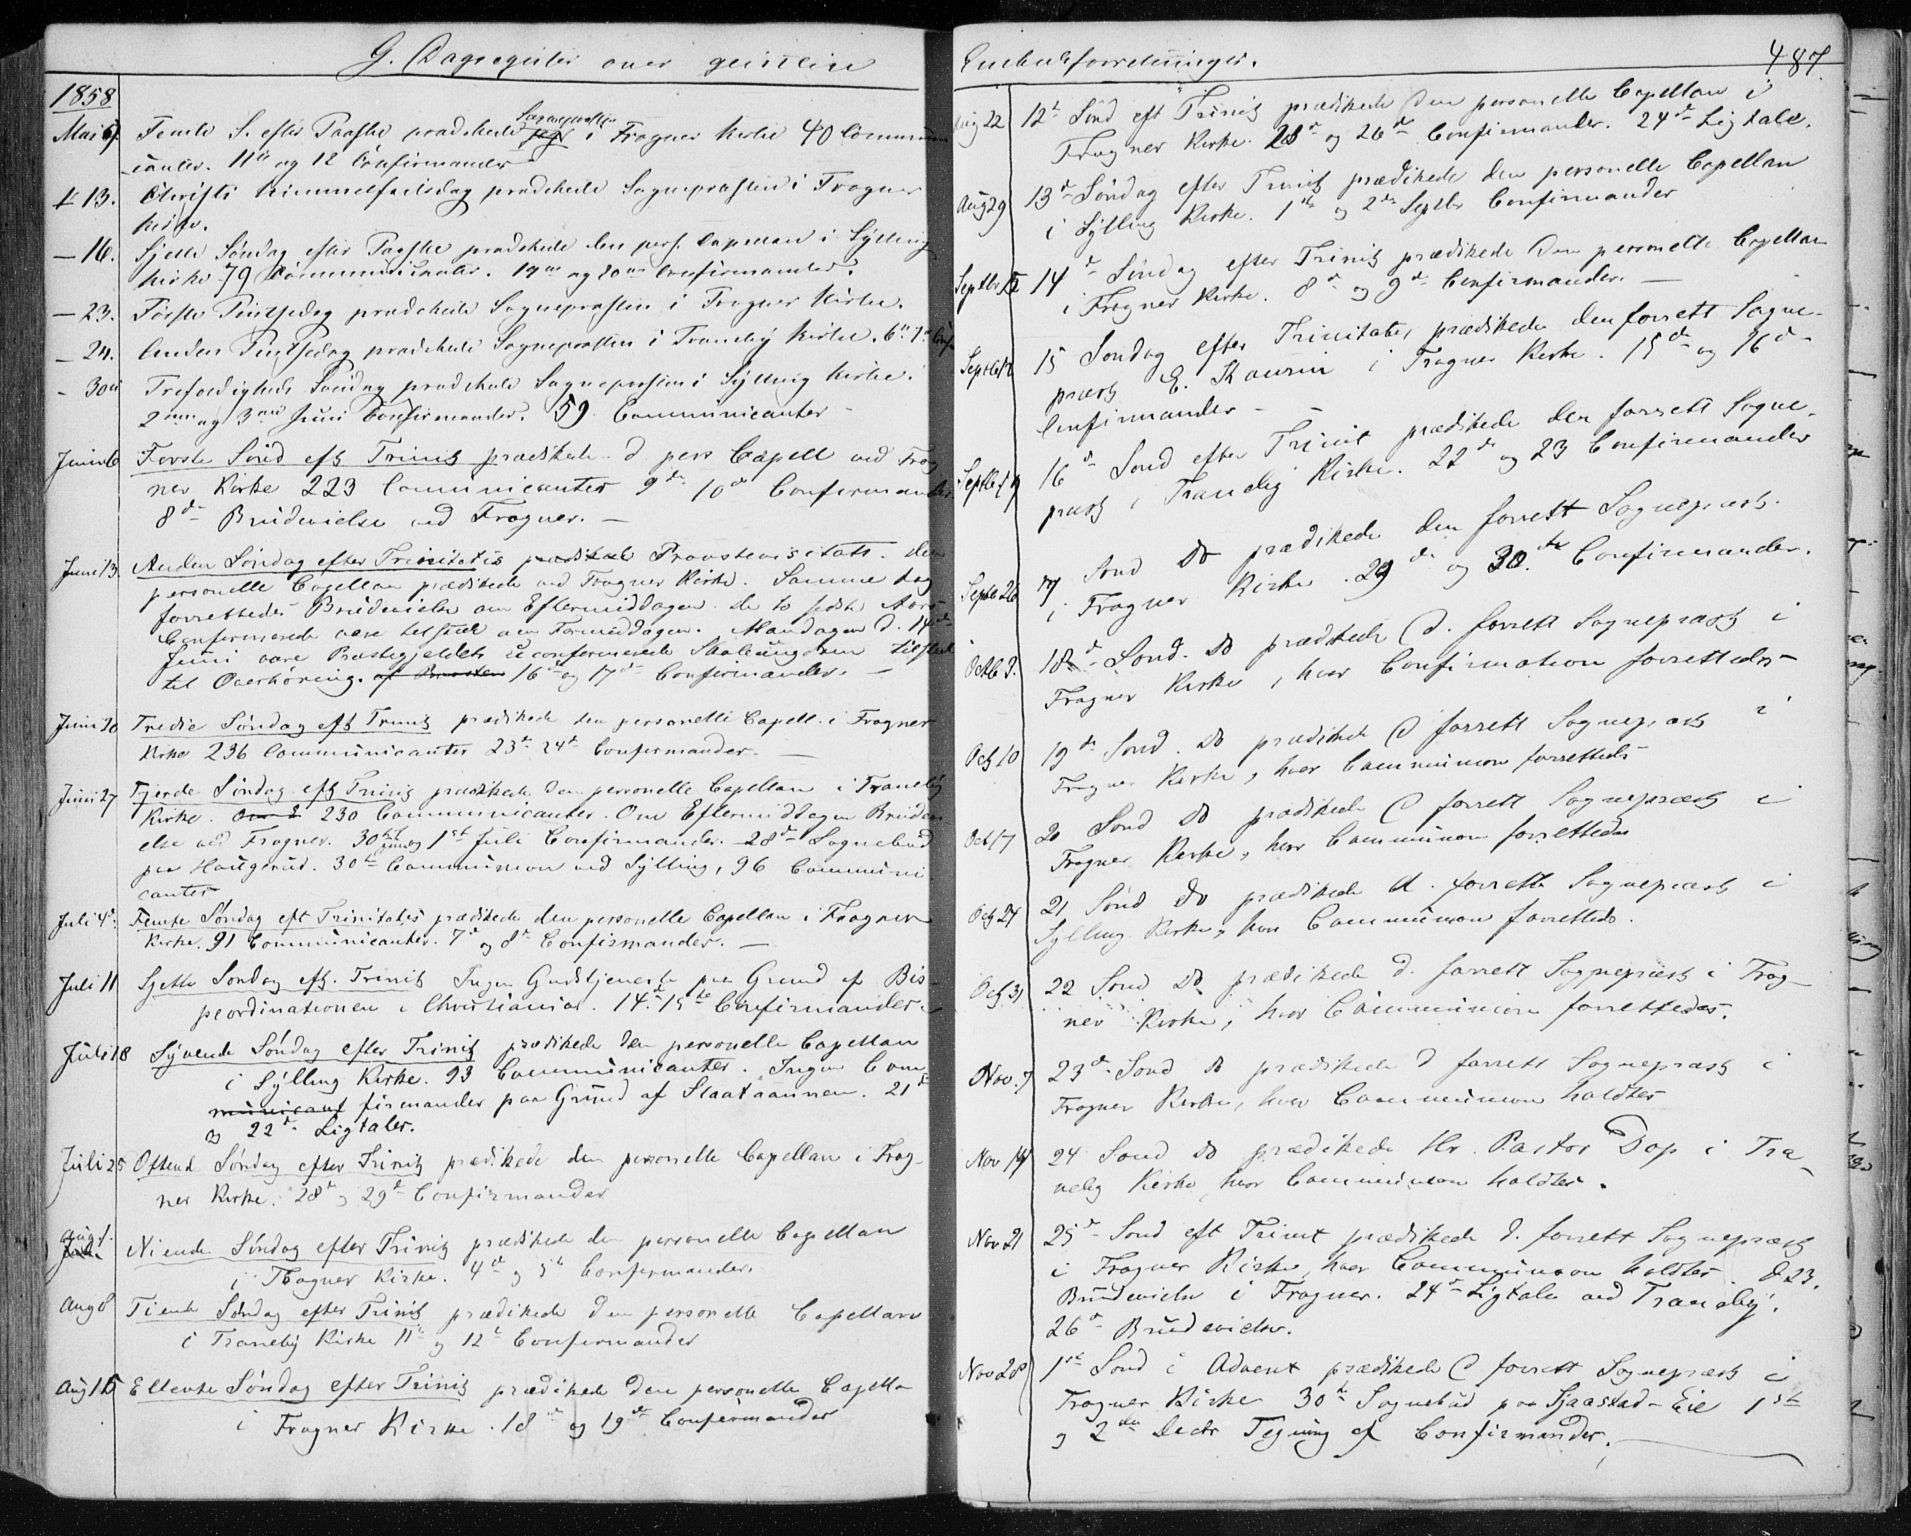 G. Dagregister over geistlige
1858
Mai 9 Femte S. efter Paaske prædikede Sognepræsten jeg i Frogner Kirke 40 Commun
icanter. 11te og 12 Confirmander
13. Christi Himmelfartsdag prædikede Sognepræsten i Frogner
Kirke.
— 16. Sjette Søndag efter Paaske prædikede den pers. Capellan i Sylling
Kirke 79 Communicanter. 19de og 20de Confirmander.
— 23. Første Pintsedag prædikede Sognepræsten i Frogner Kirke.
— 24. Anden Pintsedag prædikede Sognepræsten i Tranby Kirke.
- 30te Trefoldigheds Søndag prædikede Sognepræsten i Sylling Kirke.
2den og 3die Juni Confirmander. 59 Communicanter
Juni 6 Første Sönd eft Trinit prædikede d. pers Capell ved Frog
ner Kirke 223 Communicanter 9de 10de Confirmander
8de Brudevielse ved Frogner. —
Juni 13. Anden Søndag efter Trinitatis prædikede Provstevisitats. den
personelle Capellan prædikede ved Frogner Kirke. Samme dag
forrettedes Brudevielse om Eftermiddagen. de to sidste Aars
Confirmerede vare tilstede om Formiddagen. Mandagen d. 14de
Juni vare Præstegjeldets uconfirmerede Skoleungdom tilstede
til Overhøring. af Provsten 16de og 17de Confirmander. —
Juni 20 Tredie Søndag eft Trinit prædikede den personelle Capell. i Frogner
Kirke 236 Communicanter 23de 24de Confirmander. —
Juni 27 Fjerde Søndag eft Trinit prædikede den personelle Capellan i Tranby
Kirke. Om E 230 Communicanter. Om Eftermiddagen Brudevi
else ved Frogner. 30te Juni og 1ste Juli Confirmander. 28de Sognebud
paa Haugerud. 30te Communion ved Sylling, 96 Communi
canter
Juli 4de Femte Søndag eft Trinitatis prædikede den personelle Capellan i Frogner
Kirke. 91 Communicanter. 7de og 8de Confirmander. —
Juli 11 Sjette Søndag eft. Trinit Ingen Gudstjeneste paa Grund af Bis-
peordinationen i Christiania. 14de 15de Confirmander
Juli 18 Syvende Søndag efter Trinit prædikede den personelle Capellan
i Sylling Kirke. 93 Communicanter. Ingen Con-
municant firmander paa Grund af Slaataannen. 21de
og 22de Ligtaler.
Juli 25 Ottende Søndag efter Trinit prædikede den personelle Capellan i Frog-
ner Kirke. 28de og 29de Confirmander
Aug 1. Juli Niende Søndag efter Trinit prædikede den personelle Capellan
i Frogner Kirke. 4de og 5te Confirmander.
Aug 8 Tiende Søndag efter Trinit prædikede den personelle Capellan
i Tranby Kirke 11te og 12te Confirmander
Aug 15 Ellevte Søndag efter Trinit prædikede den personelle Capella
i Frogner Kirke. 18de og 19de Confirmander
Embedsforretninger. 487.
Aug 22 12te Sönd eft Trinit prædikede den personelle Capellan i
Frogner Kirke. og 26de Confirmander. 24de Ligtale.
Aug 29 13de Søndag efter Trinit prædikede den personelle Capellan
i Sylling Kirke. 1ste og 2den Septbr Confirmander
Septbr 5 14de Søndag efter Trinit prædikede den personelle Capellan
i Frogner Kirke. 8de og 9de Confirmander. —
Septbr 12 15 Søndag efter Trinitatis prædikede den forrett Sogne-
præst E. Kaurin i Frogner Kirke. 15de og 16de
Confirmander —
Septbr 19 16de Sönd efter Trinit prædikede den forrett Sogne-
præst i Tranby Kirke. 22de og 23 Confirmander
Septbr 26 17 Sönd Do prædikede den forrett Sognepræst
i Frogner Kirke. 29de og 30te Confirmander.
Octb 3. 18de Sönd. Do prædikede d. forrett Sognepræst i
Frogner Kirke, hvor Confirmation forrettedes
Oct 10 19de Sönd. Do prædikede d forrett Sognepræst i
Frogner Kirke, hvor Communion forrettedes
Oct 17 20 Sönd Do prædikede d forrett Sognepræst i
Frogner Kirke, hvor Communion forrettedes
Oct 24 21 Sönd Do prædikede d. forrett Sognepræst i
Sylling Kirke, hvor Communion forrettedes.
Oct 31 22 Sönd Do prædikede d. forrett Sognepræst i Frog-
ner Kirke, hvor Communion forrettedes.
Nov. 7 23de Sönd Do prædikede d forrett Sognepræst i
Frogner Kirke, hvor Communion holdtes
Nov 14 24 Sönd Do prædikede Hr. Pastor Dop i Tra-
neby Kirke hvor Communion holdtes.
Nov 21 25de Sönd eft Trinit prædikede d. forrett Sognepræst
i Frogner Kirke, hvor Communion holdtes. d 23.
Brudevielse i Frogner. 24de Ligtale ved Traneby.
26de Brudevielse.
Nov 28 1ste Sönd i Advent prædikede d forrett Sognepræst i
Frogner Kirke 30te Sognebud paa Sjaastad-Eie 1ste
og 2den Decbr Tegning af Confirmander.